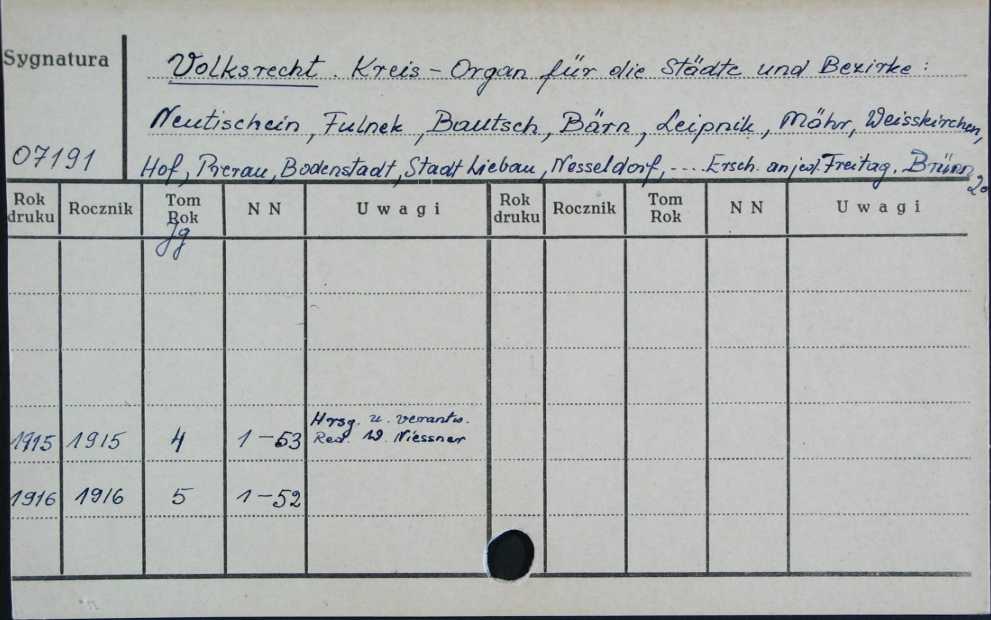 Sygnatura
Volksrecht. Kreis-Organ für die Städte und Bezirke:
Neutischein, Fulnek, Bautsch, Bärn, Leipnik, Möhr, Weisskirchen,
07191
Hof, Prerau, Bodenstadt, Stadt Liebau, Nesseldorf, .... Ersch. an jed. Freitag. Brünn
20
Rok druku Rocznik Tom Rok NN Uwagi Rok druku Rocznik Tom Rok NN Uwagi
Jg
Hrsg. u. verantw.
1915 1915 4 1-53 Red. W. Niessner
1916 1916 5 1-52